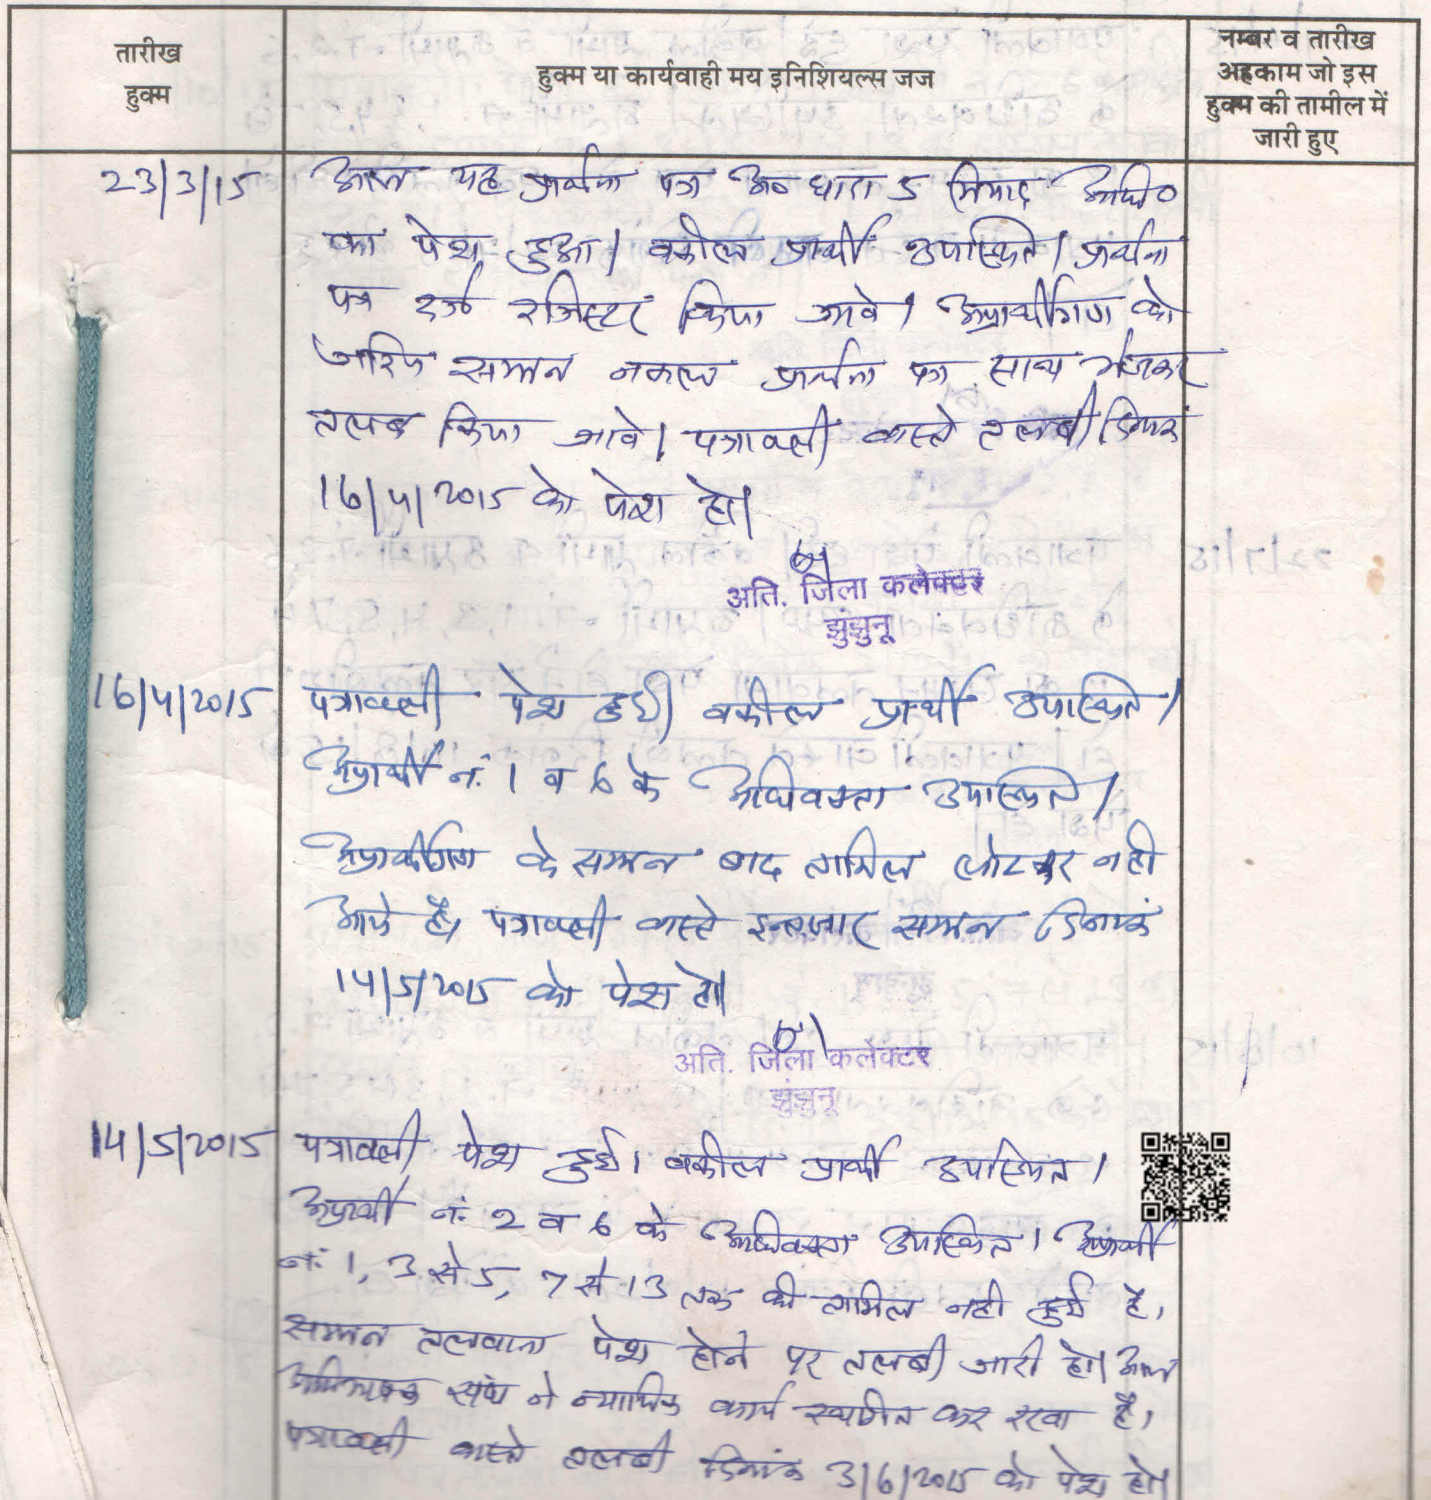 तारीख
हुक्म
हुक्म या कार्यवाही मय इनिशियल्स जज
नम्बर व तारीख
अहकाम जो इस
हुक्म की तामील में
जारी हुए
23/3/15
आज यह प्रार्थना पत्र अ० धारा 5 मियाद अधि०
का पेश हुआ। वकील प्रार्थी उपस्थित। प्रार्थना
पत्र दर्ज रजिस्टर किया जावे। अप्रार्थीगण को
जरिए सम्मन नकल प्रार्थना पत्र साथ भेजकर
तलब किया जावे। पत्रावली वास्ते तलबी दिनांक
16/4/2015 को पेश हो।
अति. जिला कलेक्टर
झुंझुनू
16/4/2015
पत्रावली पेश हुई। वकील प्रार्थी उपस्थित।
अप्रार्थी नं. 1 व 6 के अधिवक्ता उपस्थित।
अप्रार्थीगण के सम्मन बाद तामिल लोटकर नही
आये है। पत्रावली वास्ते इन्तजार सम्मन दिनांक
14/5/2015 को पेश हो।
अति. जिला कलेक्टर
झुंझुनू
14/5/2015
पत्रावली पेश हुई। वकील प्रार्थी उपस्थित।
अप्रार्थी नं. 2 व 6 के अधिवक्ता उपस्थित। अप्रार्थी
नं. 1, 3 से 5, 7 से 13 तक की तामिल नही हुई है।
सम्मन तलवाना पेश होने पर तलबी जारी हो। आज
अभिभाषक संघ ने न्यायिक कार्य स्थगित कर रखा है।
पत्रावली वास्ते तलबी दिनांक 3/6/2015 को पेश हो।